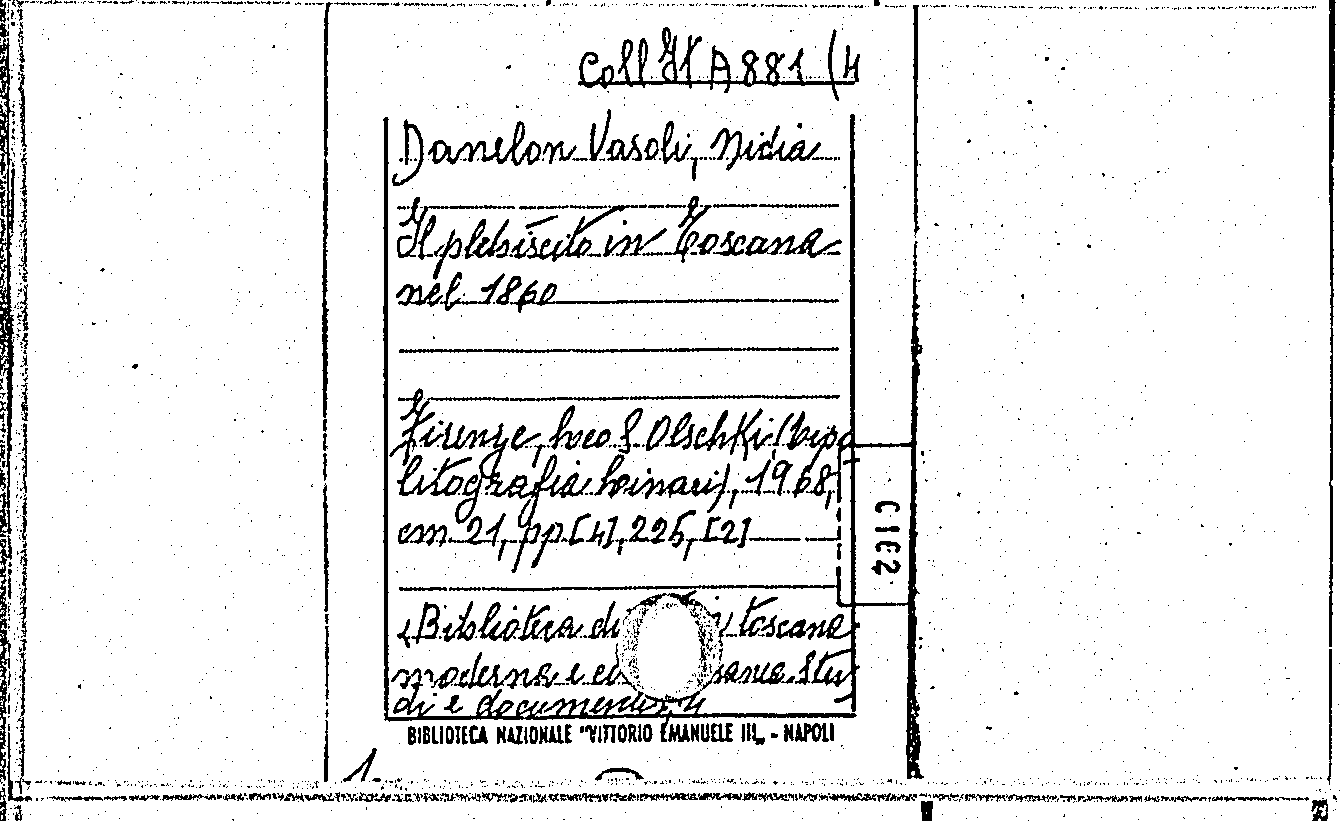 Coll It A 881 (4
Danelon Vasoli, Nidia
Il plebiscito in Toscana
nel 1860
Firenze, Leo S Olschki, (Tipo
litografia Coinaei), 1968,
cm 21, pp. [4], 225, [2]
(Biblioteca di toscana
moderna e Stu
di e documenti, 4
BIBLIOTECA NAZIONALE "VITTORIO EMANUELE III„ - NAPOLI
C1C2
1.